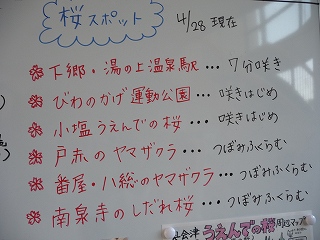 桜スポット
4/28 現在
下郷・湯の上温泉駅…7分咲き
びわのかげ運動公園…咲きはじめ
小塩うえんでの桜…咲きはじめ
戸赤のヤマザクラ…つぼみふくらむ
番屋・八総のヤマザクラ…つぼみふくらむ
南泉寺のしだれ桜…つぼみふくらむ
会津うえんでの桜